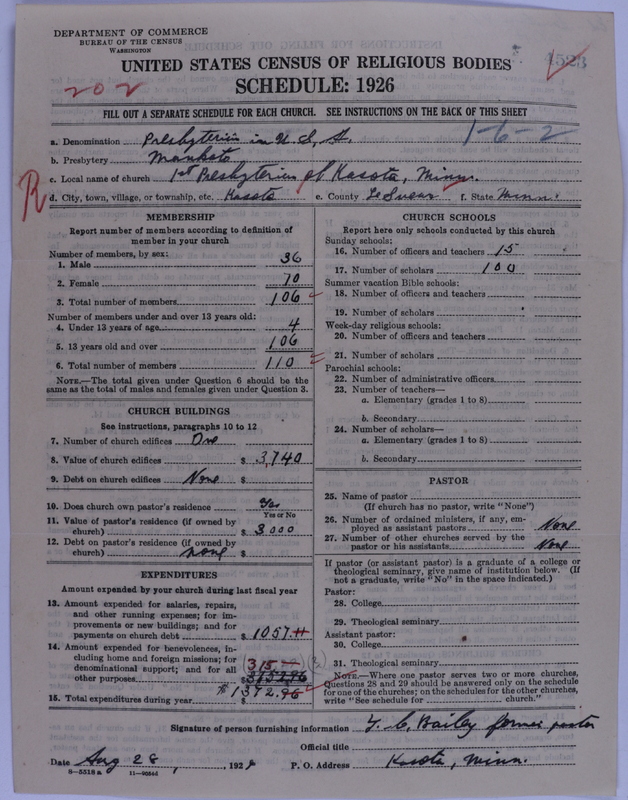 DEPARTMENT OF COMMERCE
BUREAU OF THE CENSUS
WASHINGTON
UNITED STATES CENSUS OF RELIGIOUS BODIES
SCHEDULE: 1926
202
FILL OUT A SEPARATE SCHEDULE FOR EACH CHURCH. SEE INSTRUCTIONS ON THE BACK OF THIS SHEET
1-6-2
a. Denomination Presbyterian in U. S. A.
b. Presbytery Mankato
c. Local name of church 1st Presbyterian of Kasota, Minn.
R
d. City, town, village, or township, etc. Kasota e. County Le Sueur f. State Minn.
MEMBERSHIP
Report number of members according to definition of
member in your church
Number of members, by sex:
1. Male 36
2. Female 70
3. Total number of members 106
Number of members under and over 13 years old:
4. Under 13 years of age 4
5. 13 years old and over 106
6. Total number of members 110
NOTE.—The total given under Question 6 should be
same as the total of males and females given under Question 3.
CHURCH BUILDINGS
See instructions, paragraphs 10 to 12
7. Number of church edifices One
8. Value of church edifices $ 3,740
9. Debt on church edifices None $
10. Does church own pastor's residence Yes
Yes or No
11. Value of pastor's residence (if owned by
church) $ 3000
12. Debt on pastor's residence (if owned by
church) none $
EXPENDITURES
Amount expended by your church during last fiscal year
13. Amount expended for salaries, repairs,
and other running expenses; for im-
provements or new buildings; and for
payments on church debt $ 1057.11
14. Amount expended for benevolences, in-
cluding home and foreign missions; for
denominational support; and for all
other purposes 315
15. Total expenditures during year $ 1372.96
CHURCH SCHOOLS
Report here only schools conducted by this church
Sunday schools:
16. Number of officers and teachers 15
17. Number of scholars 100
Summer vacation Bible schools:
18. Number of officers and teachers
19. Number of scholars
Week-day religious schools:
20. Number of officers and teachers
21. Number of scholars
Parochial schools:
22. Number of administrative officers
23. Number of teachers—
a. Elementary (grades 1 to 8)
b. Secondary
24. Number of scholars—
a. Elementary (grades 1 to 8)
b. Secondary
PASTOR
25. Name of pastor
(If church has no pastor, write "None")
26. Number of ordained ministers, if any, em-
ployed as assistant pastors None
27. Number of other churches served by the
pastor or his assistants None
If pastor (or assistant pastor) is a graduate of a college or
theological seminary, give name of institution below. (If
not a graduate, write "No" in the space indicated.)
Pastor:
28. College
29. Theological seminary
Assistant pastor:
30. College
31. Theological seminary
NOTE.—Where one pastor serves two or more churches,
Questions 28 and 29 should be answered only on the schedule
for one of the churches; on the schedules for the other churches,
write "See schedule for church."
Signature of person furnishing information F. C. Bailey former pastor
Official title
Date Aug 28, 1928 P. O. Address Kasota, Minn.
8-5518a 11-9054d